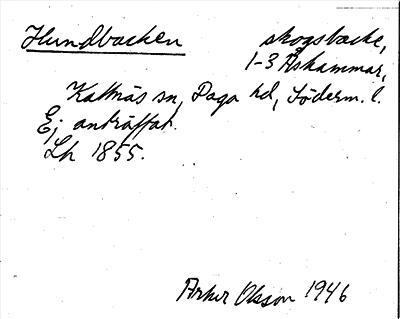 Hundbacken skogsbacke,
1-3 Åskammar,
Kattnäs sn, Daga hd, Söderm. l.
Ej anträffat.
Lh 1855.
Arthur Olsson 1946